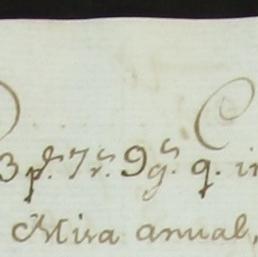 3 p.s 7 r.s 9 g.s q. in
Mira anual,